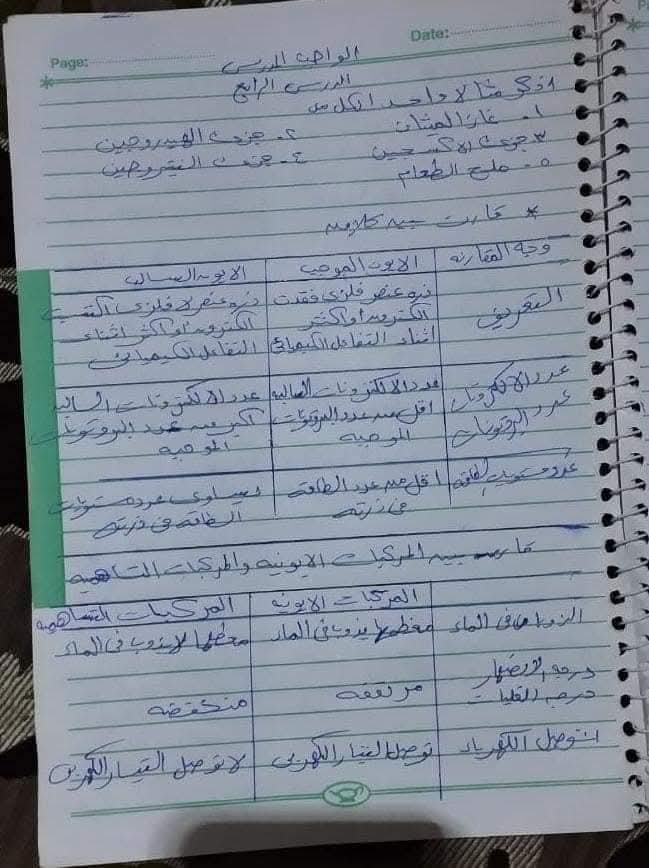 Page:
Date:
الواجب المدرسى
الدرس الرابع
اذكر مثالا واحد لكل من
١- غاز الميثان
٢- جزئ الهيدروجين
٣- جزئ الاكسجين
٤- جزئ النيتروجين
٥- ملح الطعام
* قارن بين كلا من
وجة المقارنه
الايون الموجب
الايون السالب
التعريف
ذره عنصر فلزى فقدت
الكترون او اكثر
اثناء التفاعل الكيميائى
ذره عنصر لا فلزى اكتسبت
الكترون او اكثر اثناء
التفاعل الكيميائى
عدد الالكترونات
عدد البرتونات
عدد الالكترونات السالبه
اقل من عدد البروتونات
الموجبه
عدد الالكترونات السالبه
اكبر من عدد البروتونات
الموجبه
عدد مستويات الطاقه
اقل من عدد الطاقه
فى ذرته
يساوى عدد مستويات
الطاقه فى ذرته
قارن بين المركبات الايونيه والمركبات التساهميه
المركبات الايونه
المركبات التساهميه
الذوبان فى الماء
معظمها يذوب فى الماء
معظمها لا يذوب فى الماء
درجه الانصهار
درجه الغليان
مرتفعه
منخفضه
التوصل الكهرباء
توصل التيار الكهربى
لا توصل التيار الكهربى